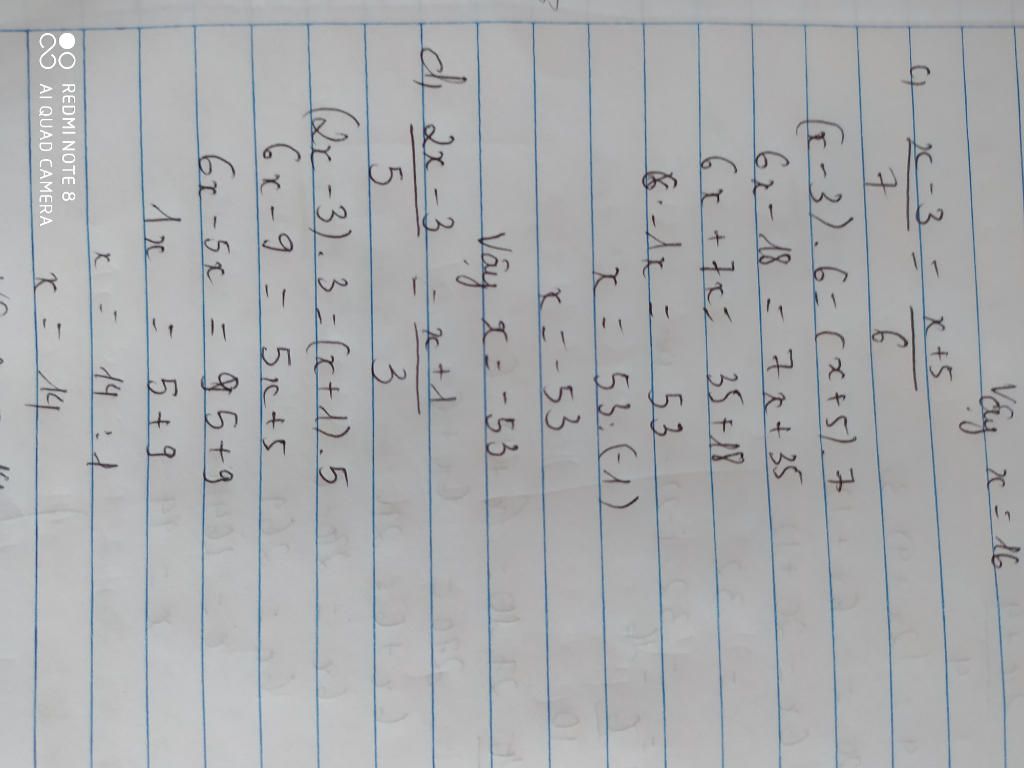 Vậy x = 16
c) x - 3 / 7 = x + 5 / 6
(x - 3) . 6 = (x + 5) . 7
6x - 18 = 7x + 35
6x + 7x = 35 + 18
- 1x = 53
x = 53 : (-1)
x = - 53
Vậy x = - 53
d) 2x - 3 / 5 = x + 1 / 3
(2x - 3) . 3 = (x + 1) . 5
6x - 9 = 5x + 5
6x - 5x = 5 + 9
1x = 5 + 9
x = 14 : 1
x = 14
REDMI NOTE 8
AI QUAD CAMERA